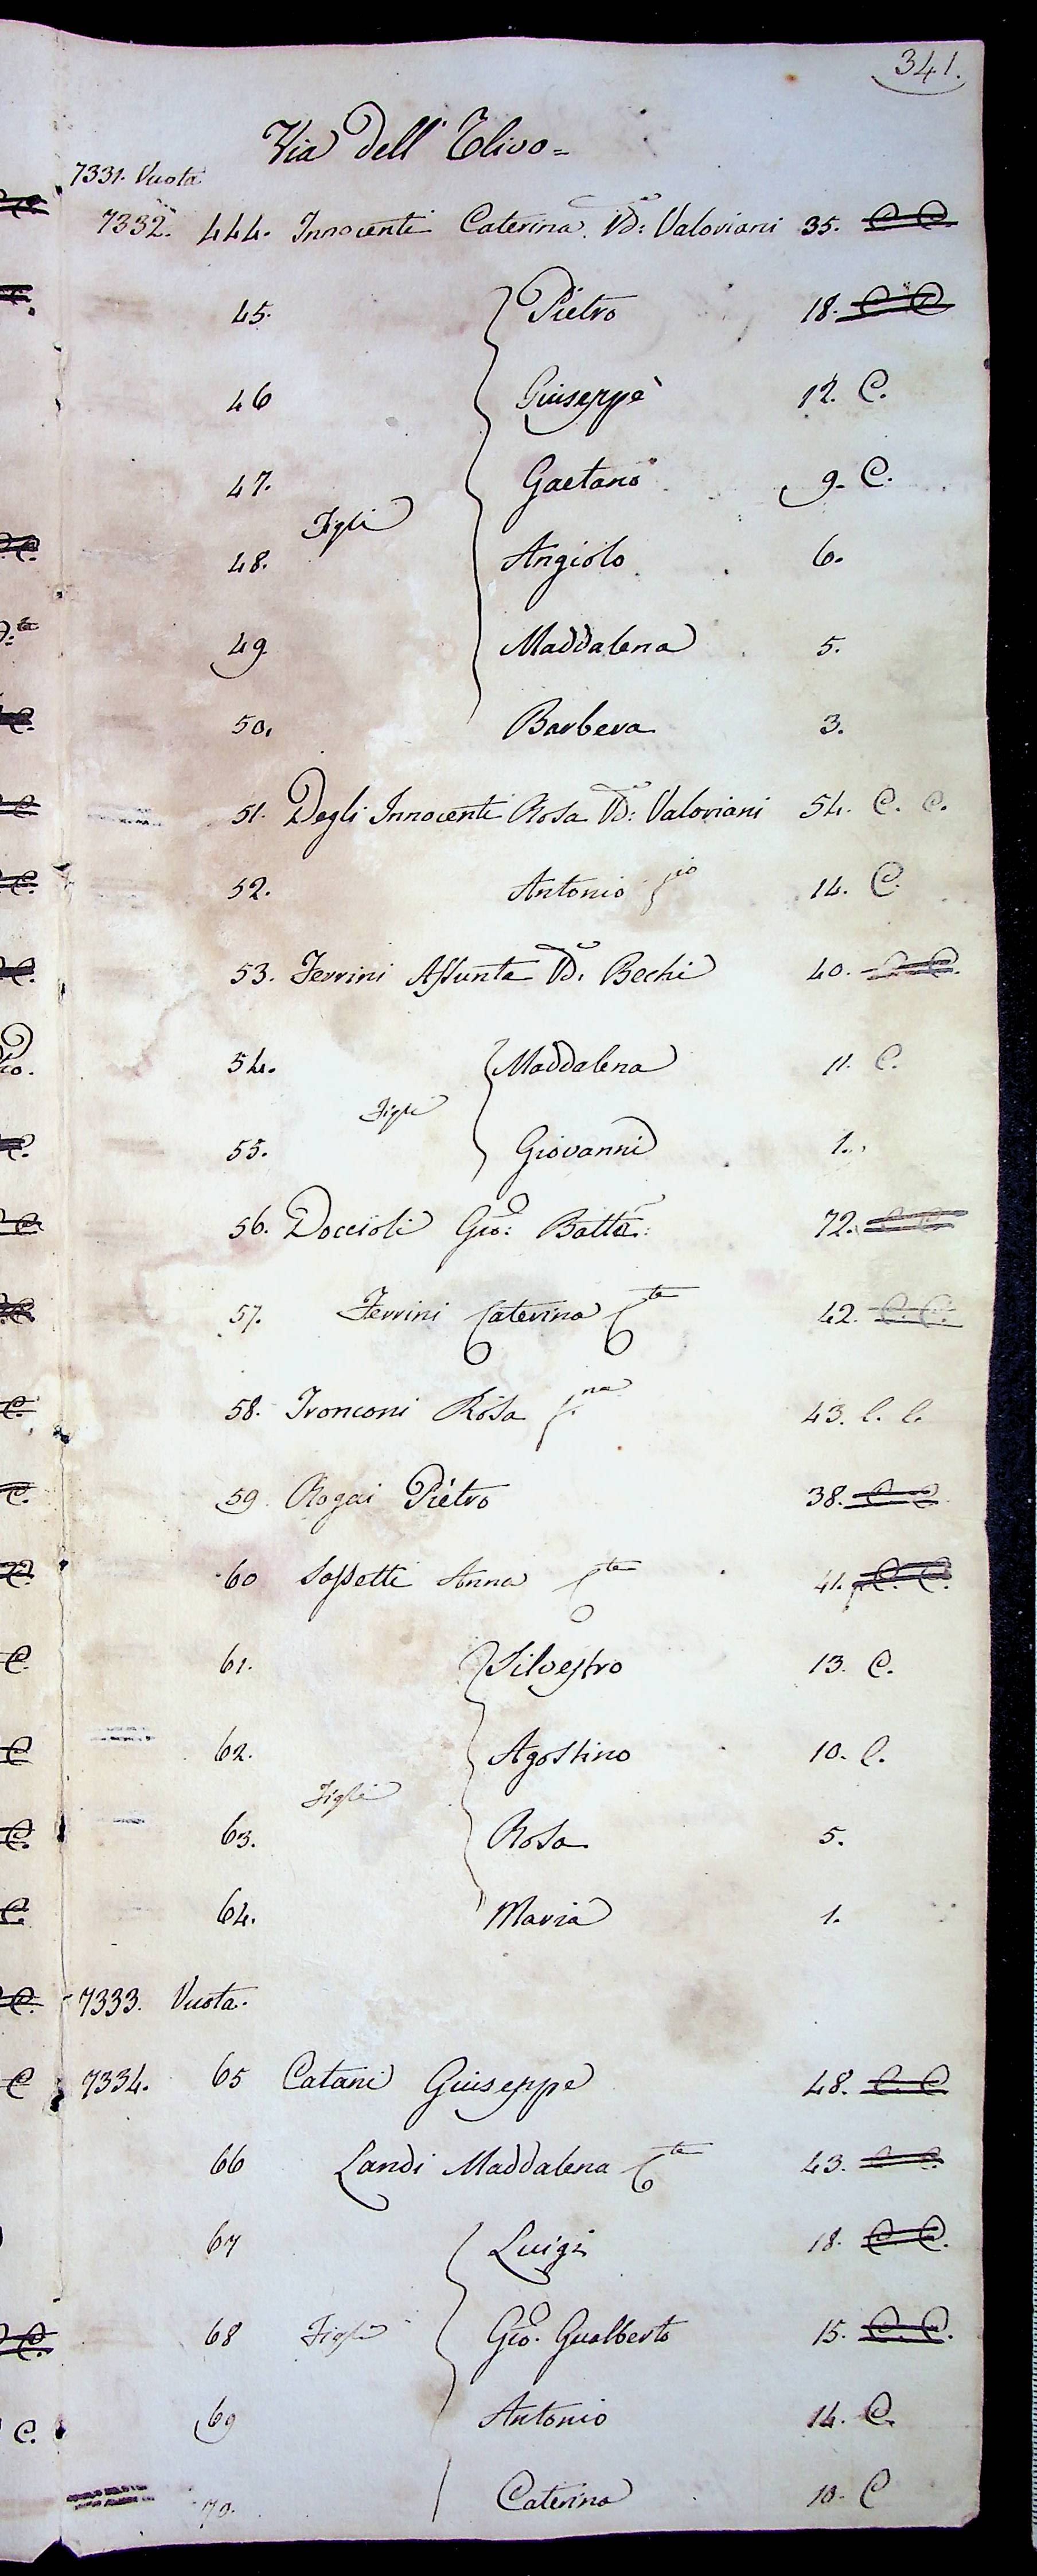 341.
Via dell' Ulivo =
7331. Vuota
7332. 444. Innocenti Caterina Vd: Valoriani 35. C C.
45. Pietro 18. C C
46 Giuseppe 12. C.
47. Gaetano 9. C.
Figli
48. Angiolo 6.
49 Maddalena 5.
50. Barbera 3.
51. Degli Innocenti Rosa Vd: Valoriani 54. C. C.
52. Antonio fio 14. C.
53. Ferrini Assunta Vd. Bechi 40. C C.
54. Maddalena 11. C.
Figli
55. Giovanni 1.
56. Doccioli Gio: Batta: 72. C C.
57. Ferrini Caterina Cte 42. C. C.
58. Tronconi Rosa fna 43. C. C.
59. Rogai Pietro 38. C C
60 Sossetti Anna Cte 41. C. C.
61. Silvestro 13. C.
62. Agostino 10. C.
Figli
63. Rosa 5.
64. Maria 1.
7333. Vuota.
7334. 65 Catani Giuseppe 48. C. C
66 Landi Maddalena Cte 43. C C.
67 Luigi 18. C C.
68 Figli Gio. Gualberto 15. C. C.
69 Antonio 14. C.
70. Caterina 10. C